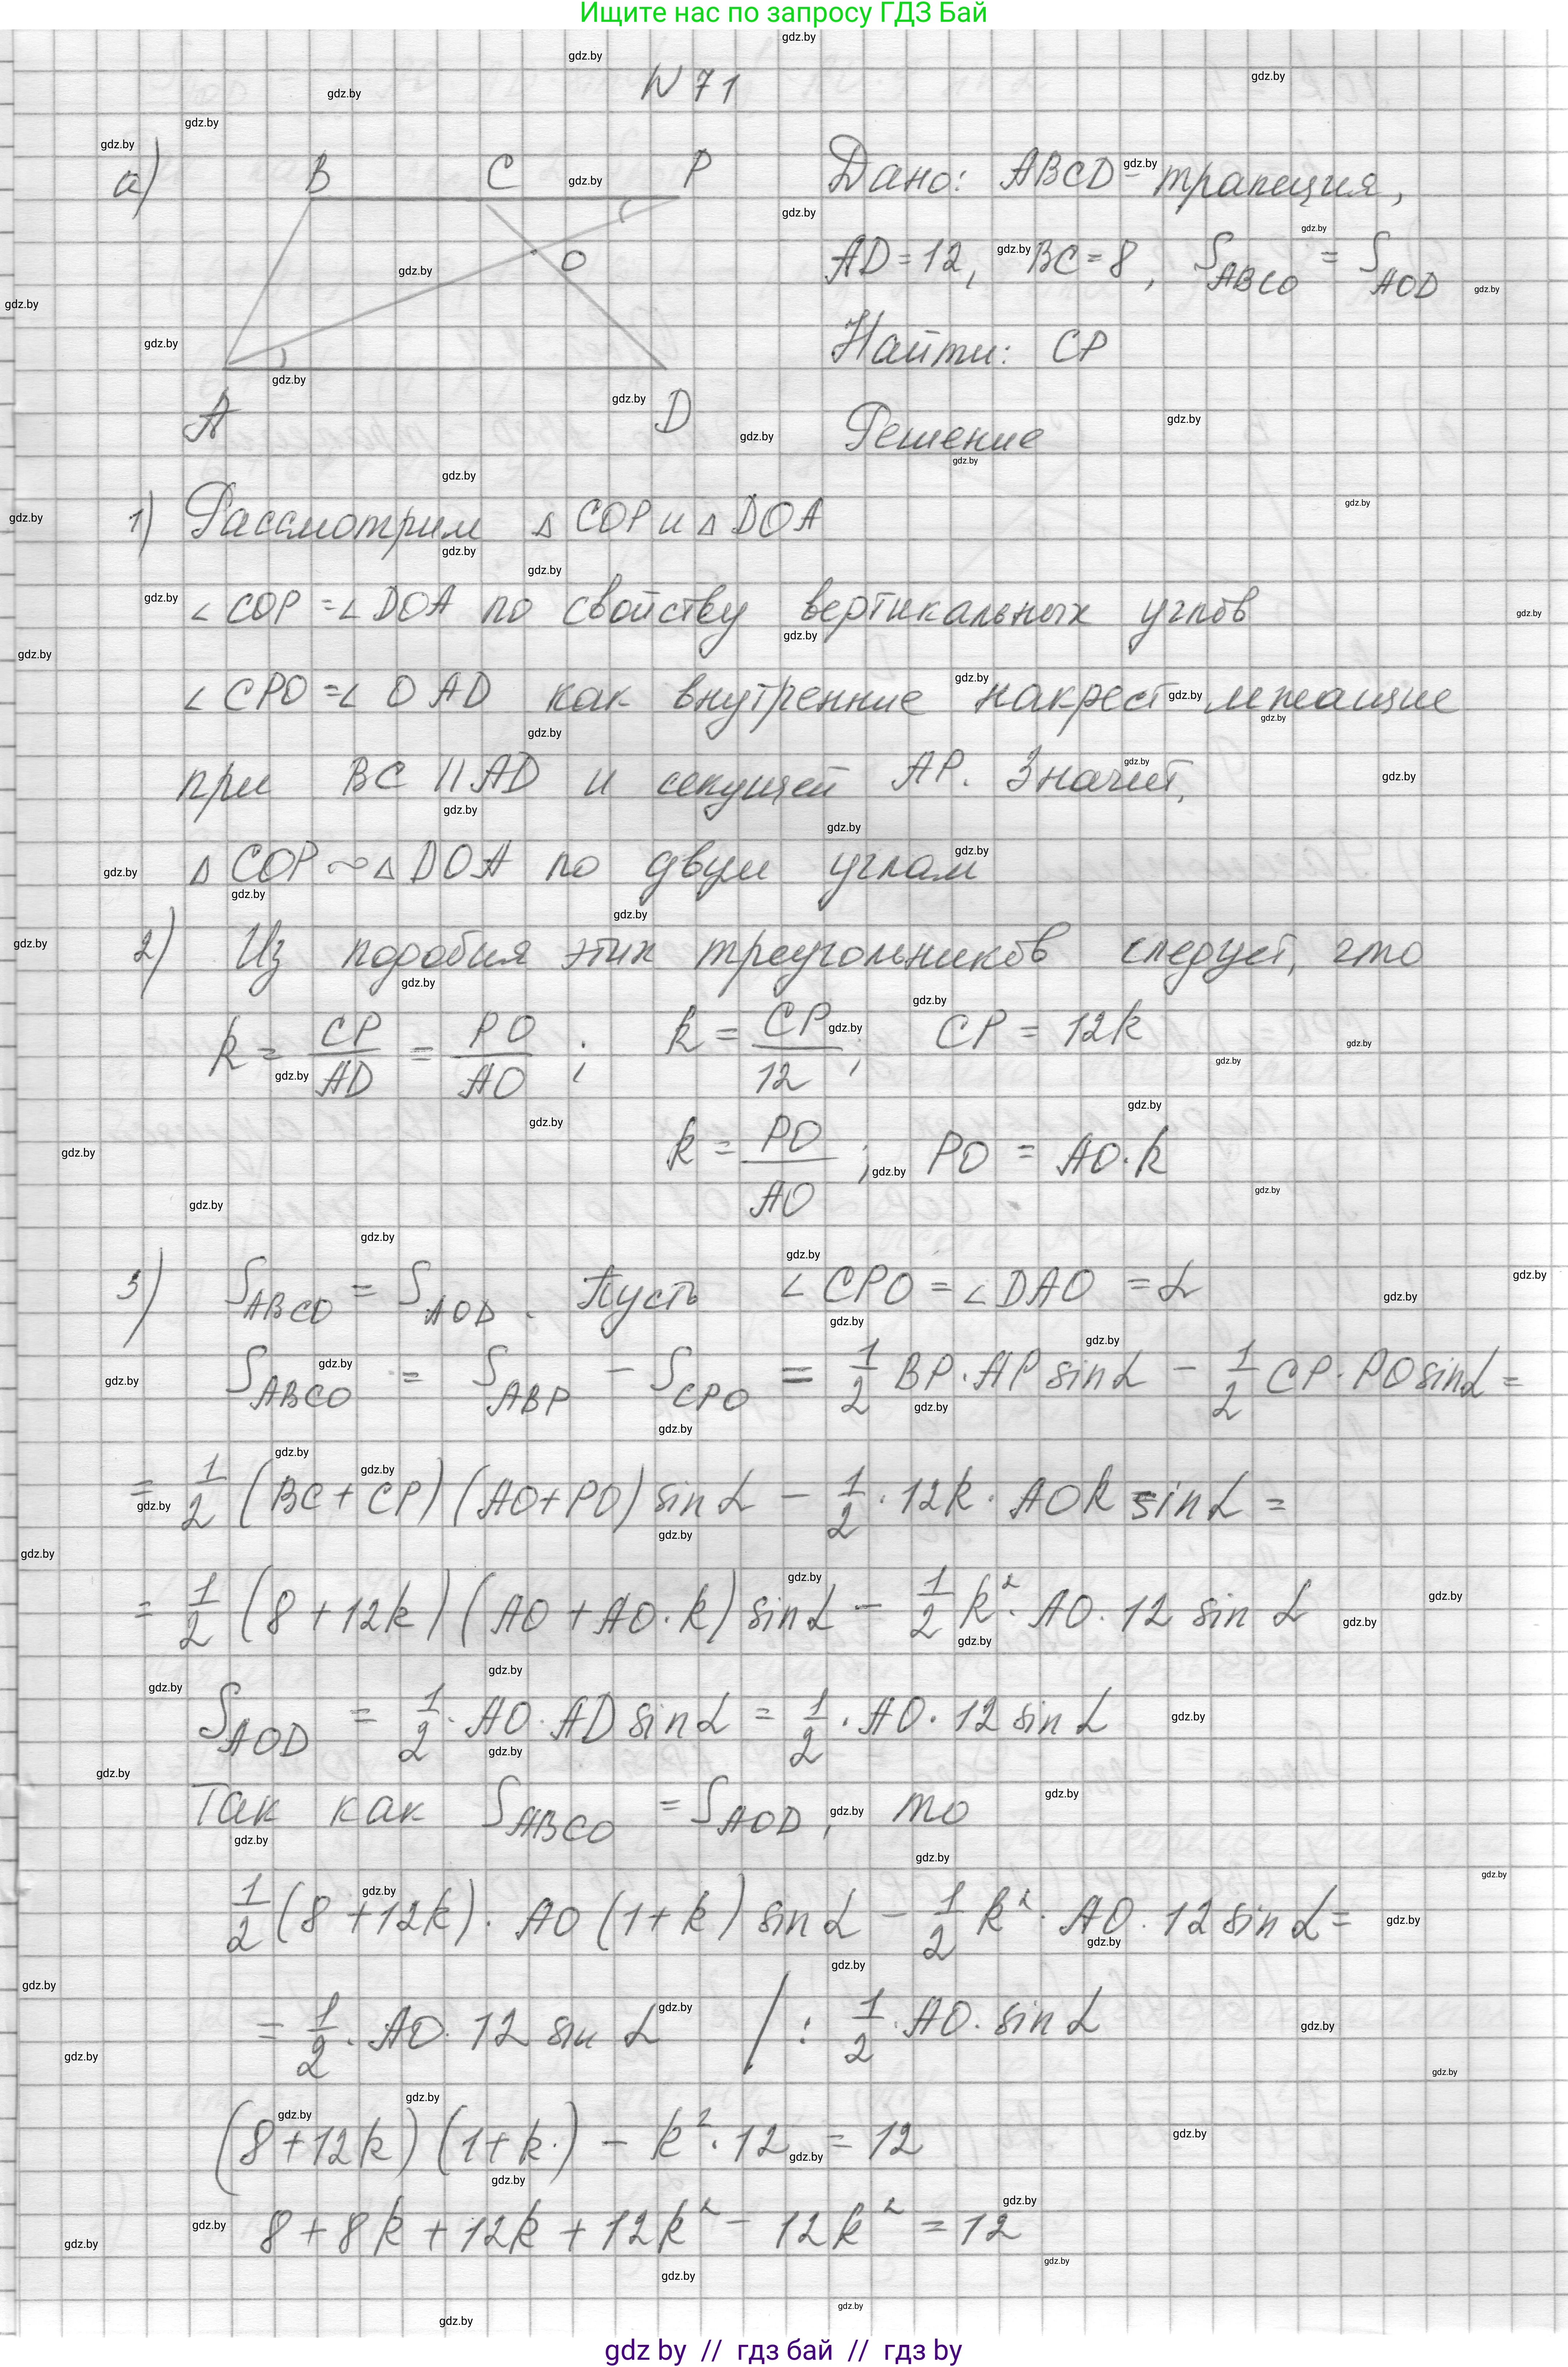 Ищите нас по запросу ГДЗ Бай
N 71
а)
B C P
O
A D
Дано: ABCD - трапеция,
AD = 12, BC = 8, S_ABCO = S_AOD
Найти: CP
Решение
1) Рассмотрим △ COP и △ DOA
∠ COP = ∠ DOA по свойству вертикальных углов
∠ CPO = ∠ OAD как внутренние накрест лежащие
при BC || AD и секущей AP. Значит,
△ COP ~ △ DOA по двум углам
2) Из подобия этих треугольников следует, что
k = CP/AD = PO/AO ; k = CP/12 ; CP = 12k
k = PO/AO ; PO = AO·k
3) S_ABCO = S_AOD. Пусть ∠ CPO = ∠ DAO = α
S_ABCO = S_ABP - S_CPO = 1/2 BP·AP sin α - 1/2 CP·PO sin α =
= 1/2 (BC + CP)(AO + PO) sin α - 1/2 · 12k · AOk sin α =
= 1/2 (8 + 12k)(AO + AO·k) sin α - 1/2 k²· AO· 12 sin α
S_AOD = 1/2 · AO · AD sin α = 1/2 · AO · 12 sin α
Так как S_ABCO = S_AOD, то
1/2 (8 + 12k) · AO (1 + k) sin α - 1/2 k² · AO · 12 sin α =
= 1/2 · AO · 12 sin α / : 1/2 · AO · sin α
(8 + 12k)(1 + k·) - k² · 12 = 12
8 + 8k + 12k + 12k² - 12k² = 12
gdz by // гдз бай // гдз by